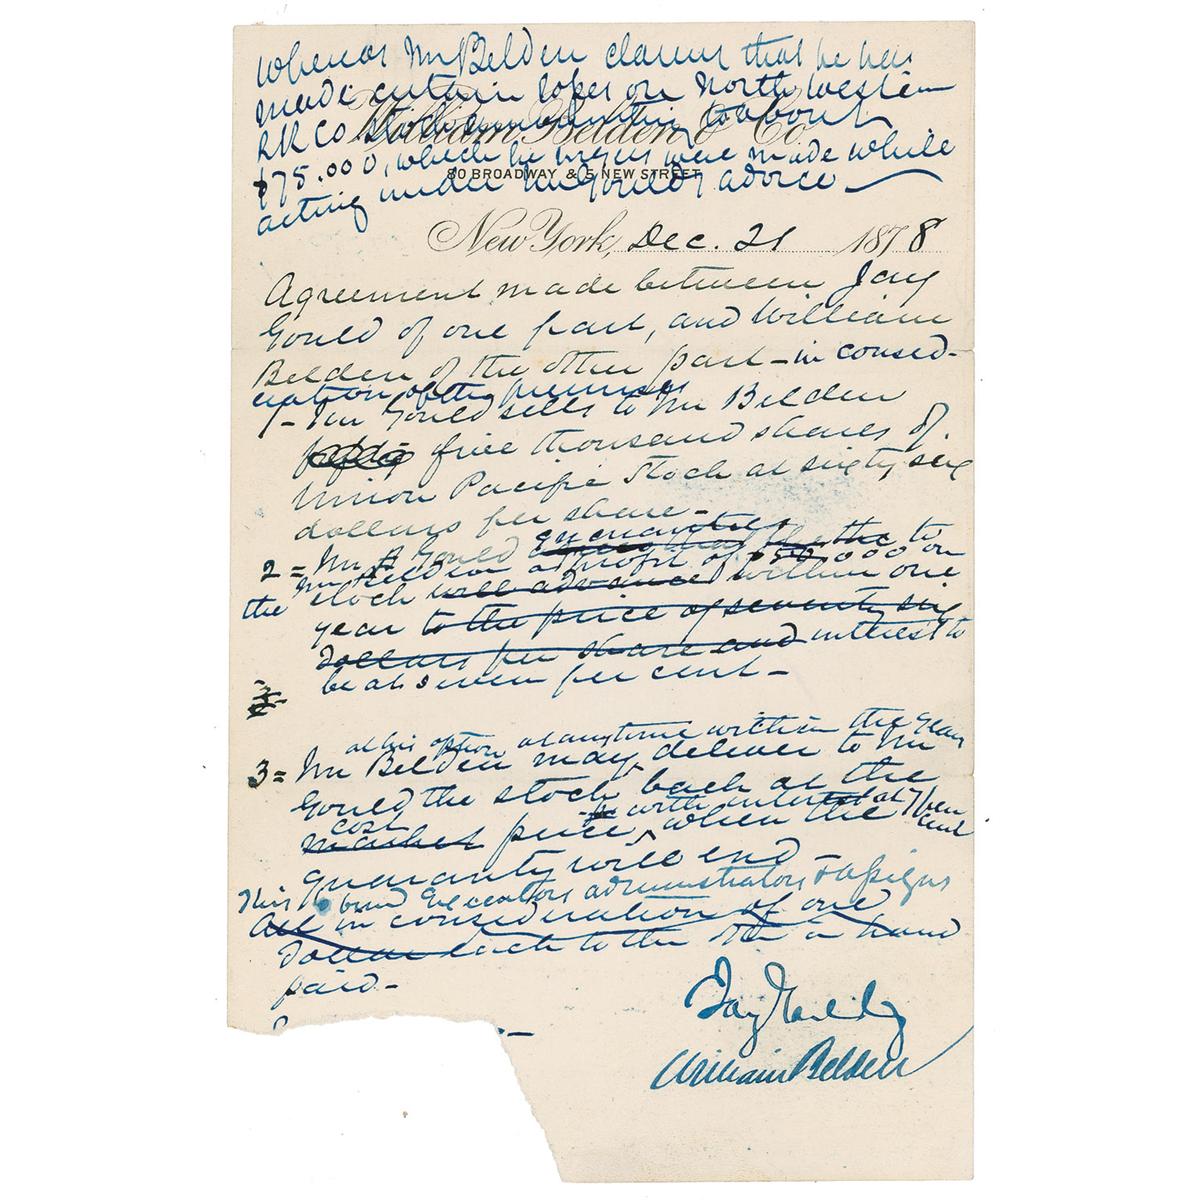 Whereas Mr Belden claims that he has
made certain losses on North Western
RR Co Stock amounting to about
$75.000, which he says were made while
acting under Mr Gould's advice
William Belden & Co.
80 BROADWAY & 5 NEW STREET
New York, Dec. 21 1878
Agreement made between Jay
Gould of one part, and William
Belden of the other part - in consid-
eration of the premises
1 - Mr Gould sells to Mr Belden
five thousand shares of
Union Pacific Stock at sixty six
dollars per share -
2 = Mr Gould guaranties to
Mr Belden a profit of $50.000 on
the stock will advance within one
year to the price of seventy six
dollars per share and interest to
be at seven per cent -
at his option at anytime within the year
3 = Mr Belden may deliver to Mr
Gould the stock back at the
cost with interest at 7 per cent
market price, when the
guaranty will end
This to bind Executors administrators & assigns
All in consideration of one
Dollar each to the other in hand
paid -
Jay Gould
William Belden